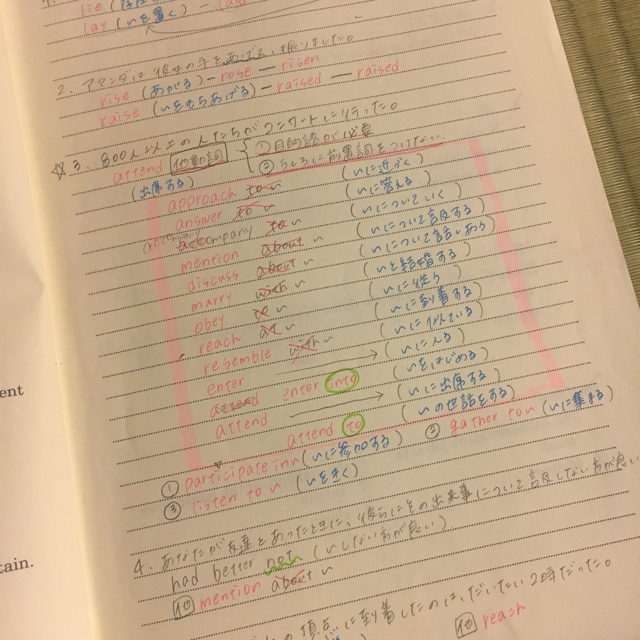 lie
lay (〜を置く) - laid
2. アマンダは彼女の手をあげる、振りました。
rise (あがる) - rose - risen
raise (〜をもちあげる) - raised - raised
☆3. 800人以上の人たちがコンサートに行った。
attend 他動詞 ①目的語が必要
(出席する) ②うしろに前置詞をつけない。
approach to 〜 (〜に近づく)
answer to 〜 (〜に答える)
accompany (〜についていく)
mention about 〜 (〜について言及する)
discuss about 〜 (〜について言いあう)
marry with 〜 (〜と結婚する)
obey to 〜 (〜に従う)
reach at 〜 (〜に到着する)
resemble with 〜 (〜に似ている)
enter → (〜に入る)
enter into (〜をはじめる)
attend → (〜に出席する)
attend to (〜の世話をする)
① participate in 〜 (〜に参加する) ② gather to 〜 (〜に集まる)
③ listen to 〜 (〜をきく)
4. あなたが友達とあったときに、彼らにその出来事について言及しない方が良い
had better not (〜しない方が良い)
他 mention about 〜
の頂点に到着したのは、だいたい2時だった。
他 reach
ent
tain.